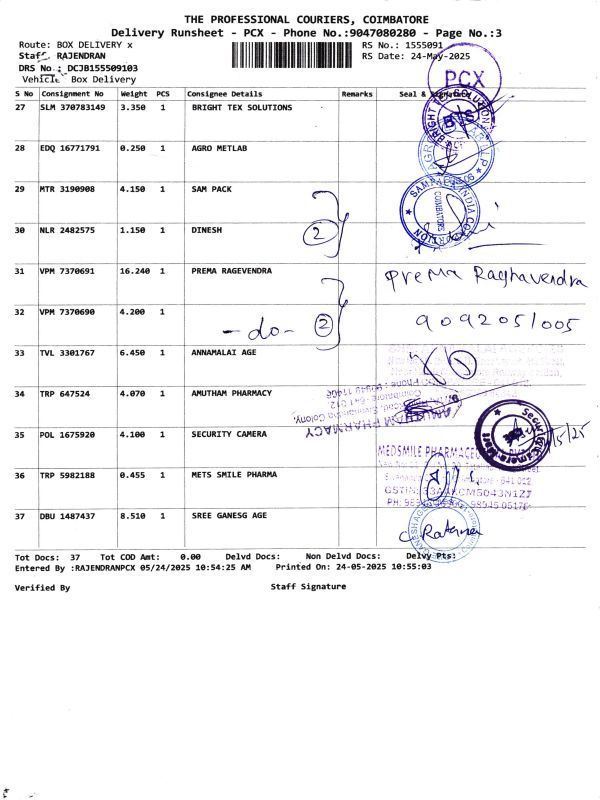 THE PROFESSIONAL COURIERS, COIMBATORE
Delivery Runsheet - PCX - Phone No.:9047080280 - Page No.:3
Route: BOX DELIVERY x RS No.: 1555091
Staff RAJENDRAN RS Date: 24-May-2025
DRS No.: DCJB155509103
Vehicle Box Delivery
PCX
S No Consignment No Weight PCS Consignee Details Remarks Seal & Signature
27 SLM 370783149 3.350 1 BRIGHT TEX SOLUTIONS
BRIGHT TEX SOLUTION
BTS
28 EDQ 16771791 0.250 1 AGRO METLAB
29 MTR 3190908 4.150 1 SAM PACK
COIMBATORE
30 NLR 2482575 1.150 1 DINESH
2
31 VPM 7370691 16.240 1 PREMA RAGEVENDRA Prema Raghavendra
32 VPM 7370690 4.200 1
-do- 2 9092051005
33 TVL 3301767 6.450 1 ANNAMALAI AGE
34 TRP 647524 4.070 1 AMUTHAM PHARMACY
AMUTHAM PHARMACY
35 POL 1675920 4.100 1 SECURITY CAMERA
MEDSMILE PHARMACE
36 TRP 5982188 0.455 1 METS SMILE PHARMA
37 DBU 1487437 8.510 1 SREE GANESG AGE
Tot Docs: 37 Tot COD Amt: 0.00 Delvd Docs: Non Delvd Docs: Delvy Pts:
Entered By :RAJENDRANPCX 05/24/2025 10:54:25 AM Printed On: 24-05-2025 10:55:03
Verified By Staff Signature